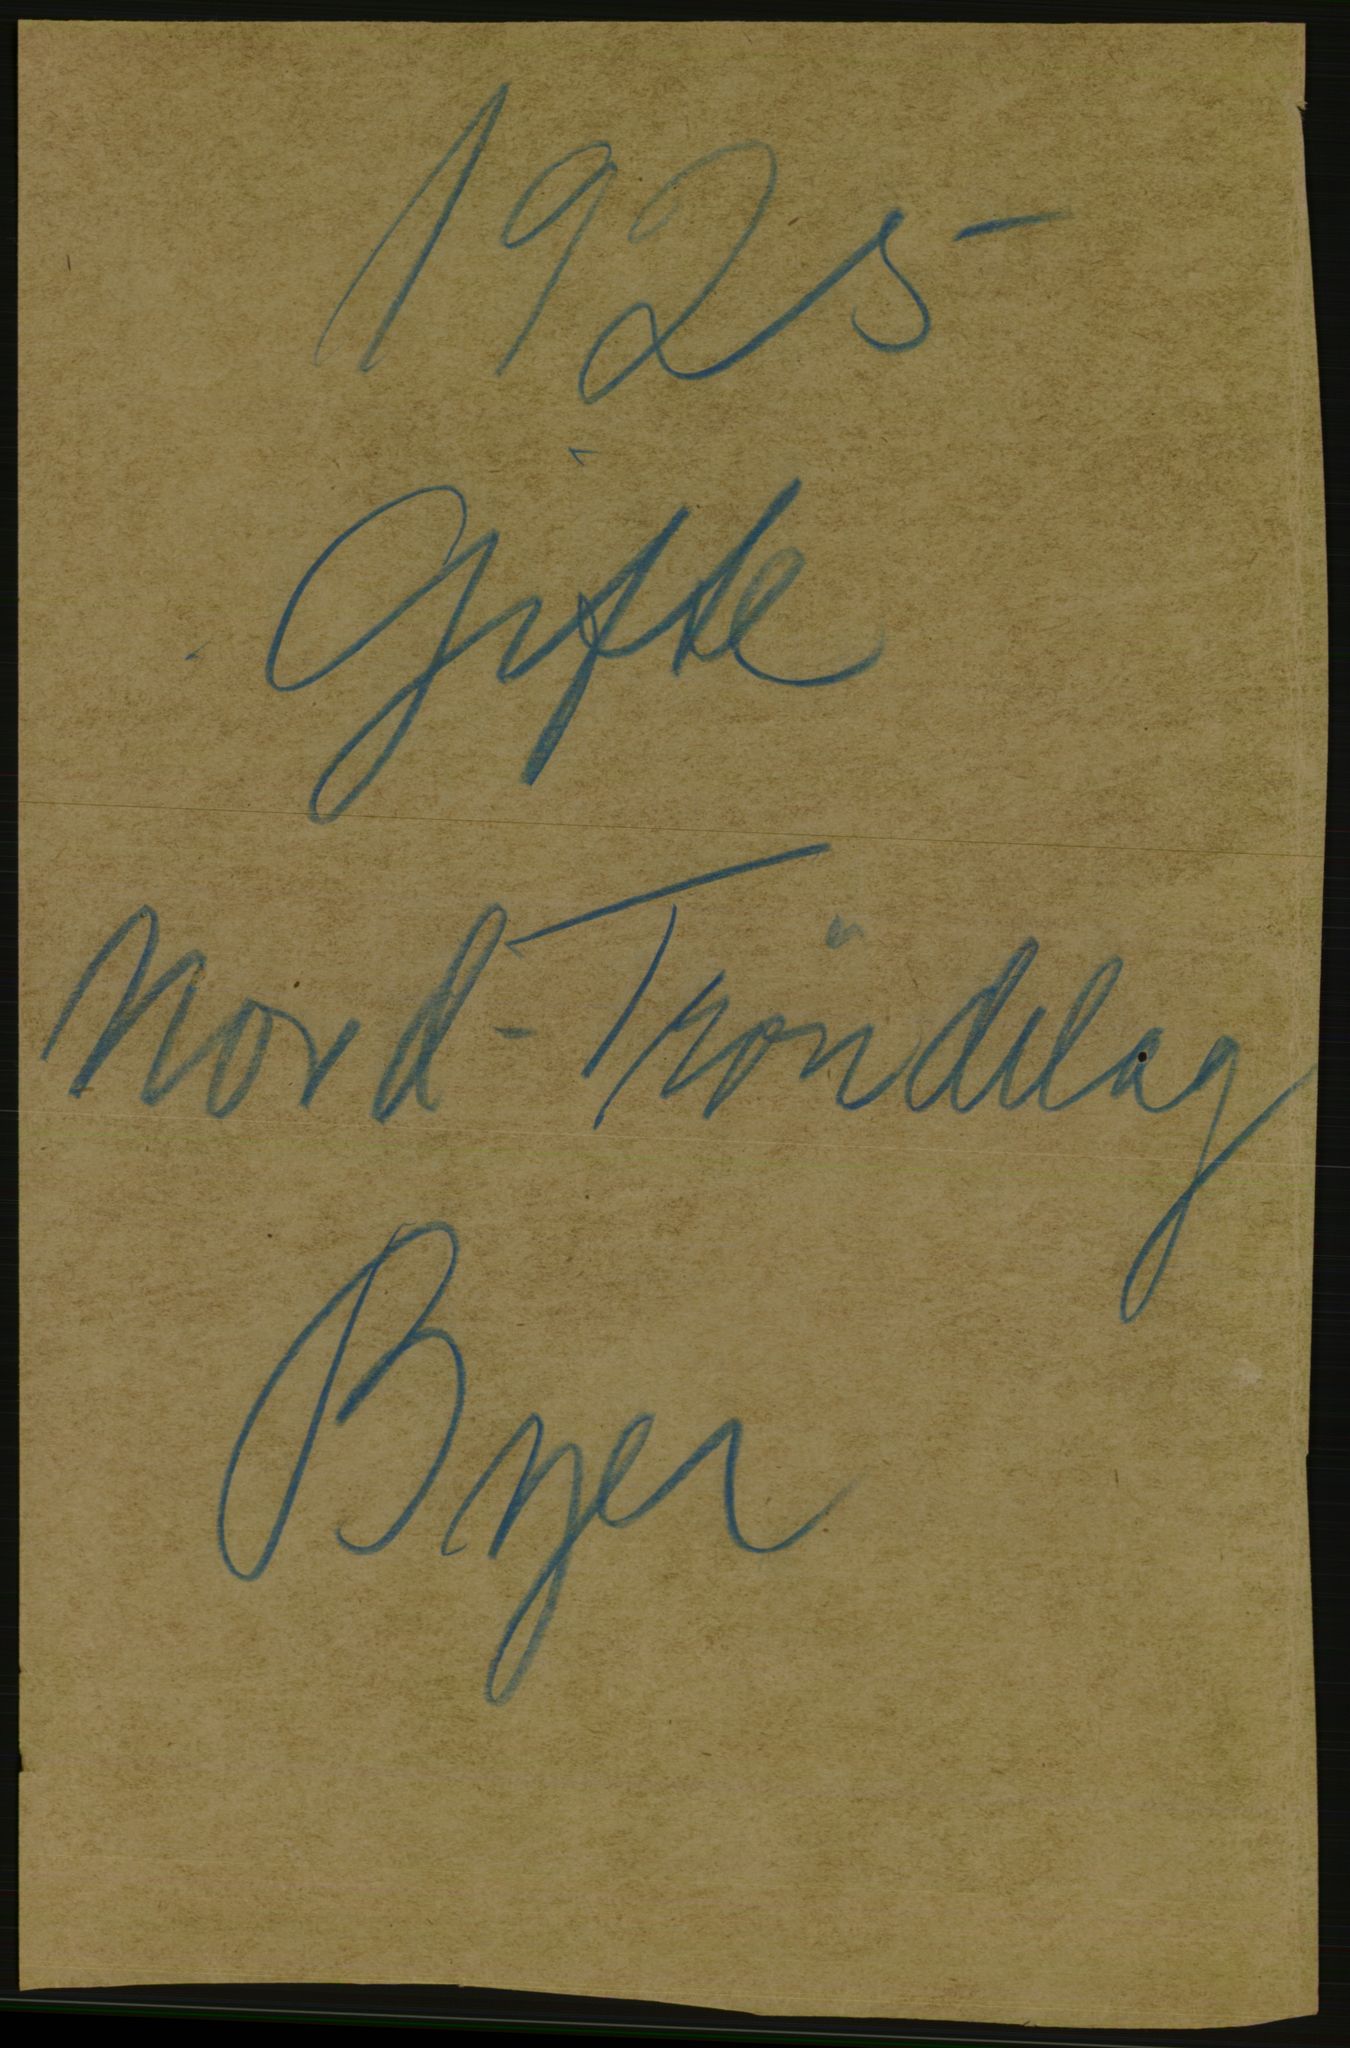 1925
Gifte
Nord-Tröndelag
Byer